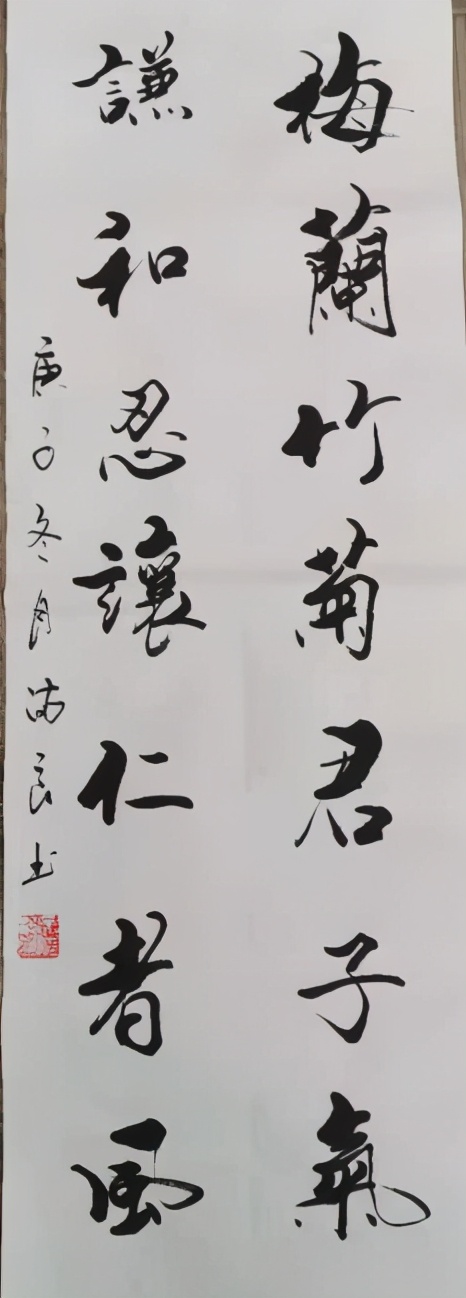 梅蘭竹菊君子氣
謙和忍讓仁者風
庚子冬月沛良书